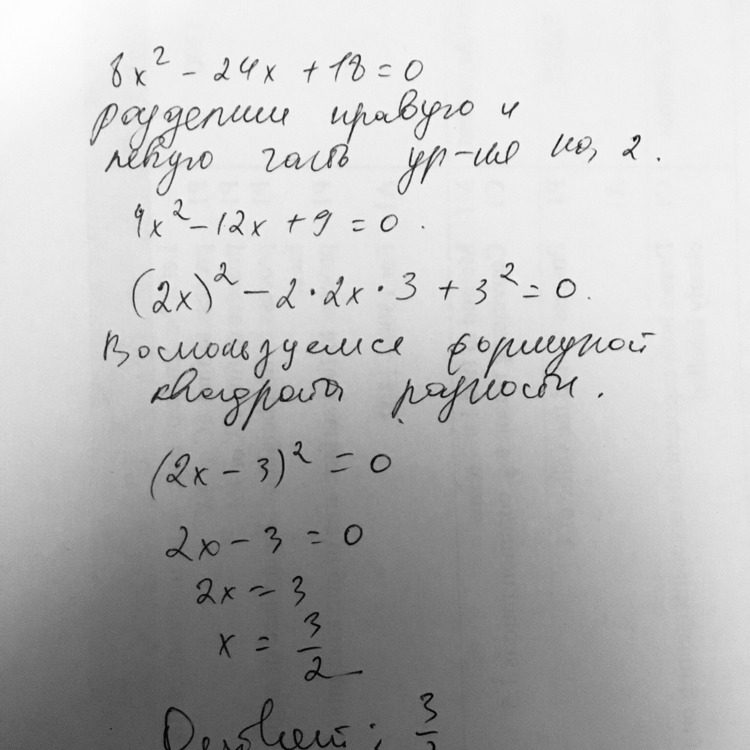 8x² - 24x + 18 = 0
разделим правую и
левую часть ур-ия на 2.
4x² - 12x + 9 = 0.
(2x)² - 2·2x·3 + 3² = 0.
Воспользуемся формулой
квадрата разности.
(2x - 3)² = 0
2x - 3 = 0
2x = 3
x = 3/2
Ответ: 3/2